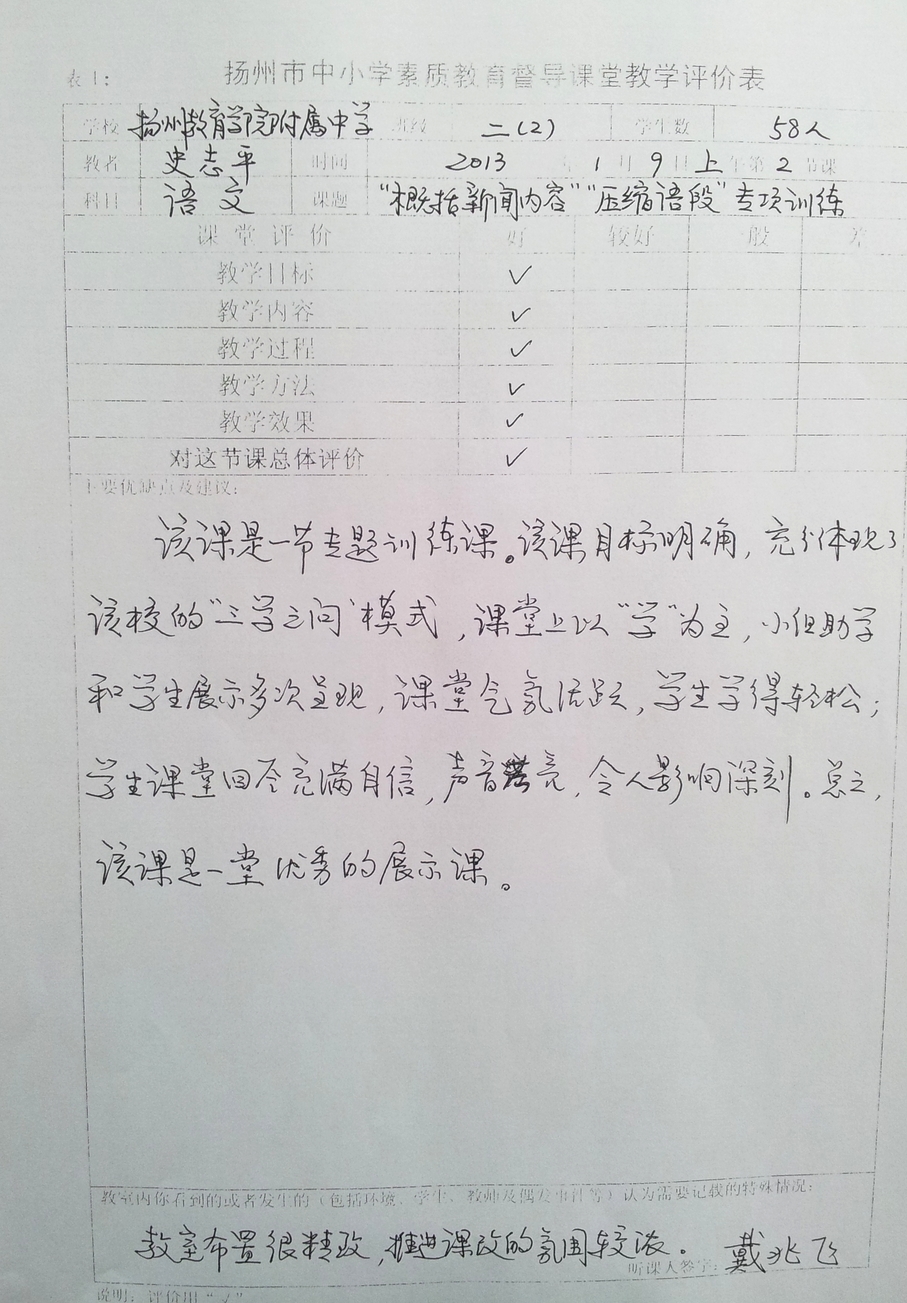 表1： 扬州市中小学素质教育督导课堂教学评价表
学校 扬州教育学院附属中学 班级 二(2) 学生数 58人
教者 史志平 时间 2013 年 1 月 9 日 上 午第 2 节课
科目 语文 课题 “概括新闻内容”“压缩语段”专项训练
课堂评价 好 较好 一般 差
教学目标 ✓
教学内容 ✓
教学过程 ✓
教学方法 ✓
教学效果 ✓
对这节课总体评价 ✓
主要优缺点及建议：
该课是一节专题训练课。该课目标明确，充分体现了
该校的“三学三问”模式，课堂上以“学”为主，小组助学
和学生展示多次呈现，课堂气氛活跃，学生学得轻松；
学生课堂回答充满自信，声音亮，令人影响深刻。总之，
该课是一堂优秀的展示课。
教室内你看到的或者发生的（包括环境、学生、教师及偶发事件等）认为需要记载的特殊情况：
教室布置很精致，推进课改的氛围较浓。
听课人签字： 戴兆飞
说明：评价用“√”